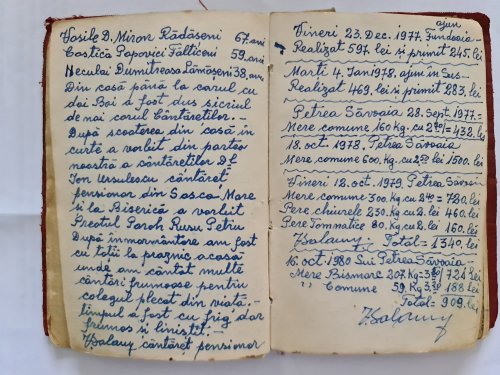 Vasile D. Miron Rădăseni 67. ani
Costică Popovici Fălticeni 59. ani
Neculai Dumitreasa Lămăseni 38, ani
Din casă până la carul cu
doi Boi a fost dus sicriul
de noi corul Cântăreților. –
După scoterea din casă în
curte a vorbit din partea
noastră a cântăreților Dl
Ion Ursulescu cântăreț
pensionor din Sasca-Mare
și la Biserică a vorbit
Preotul Paroh Rusu Petru
După înmormântare am fost
cu toții la praznic acasă
unde am cântat multe
cântări frumoase pentru
colegul plecat din viață. –
timpul a fost cu frig, dar
frumos și liniștit. –
cântăreț pensionor
ajun
Vineri 23. Dec. 1977. Fundoaia –
Realizat 597 lei și primit 245. lei
Marti 4. Jan 1978. ajun în Sus –
Realizat 469. lei și primit 283. lei
Petrea Săvoaia 28. Sept. 1977 =
Mere comune 160 Kg. cu 2.70/ = 432. lei
18. oct. 1978. Petrea Săvoaia
Mere comune 600. Kg. cu 2.50 lei 1500. lei
Vineri 12. oct. 1979. Petrea Săvoaia
Mere comune 300. Kg. cu 2.40 = 720 lei
Pere chiurele 230. Kg cu 2. lei 460. lei
Pere Tommatice 80. Kg. cu 2. lei 160. lei
Total = 1340. lei
16. oct. 1980 Lui Petrea Săvoaia –
Mere Bismare 207 Kg = 3.50 724 lei
" Comune 59 Kg 3.20 188 lei
Total = 909. lei